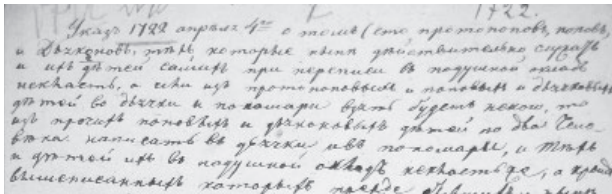 1722.
Указъ 1722 апрѣля 4го о томъ (что протопоповъ, поповъ,
и Дьяконовъ, тѣхъ которые нынѣ дѣйствительно служатъ
и ихъ дѣтей самихъ при переписи въ подушной окладъ
некласть, а если изъ протопоповыхъ и поповыхъ и дьяконовыхъ
дѣтей во дьячки и пономари взять будетъ некого, то
изъ прочихъ поповыхъ и дьяконовыхъ дѣтей по два чело-
вѣка написать въ дьячки и въ пономари, и тѣхъ
и дѣтей ихъ въ подушной окладъ некласть же, а
вышеписанныхъ которыхъ прежде